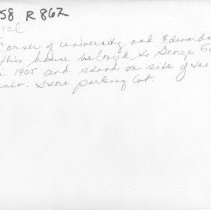 58 R862
Corner of University and Edwards
This house belonged to George
1905 and stood on side of
Store parking lot